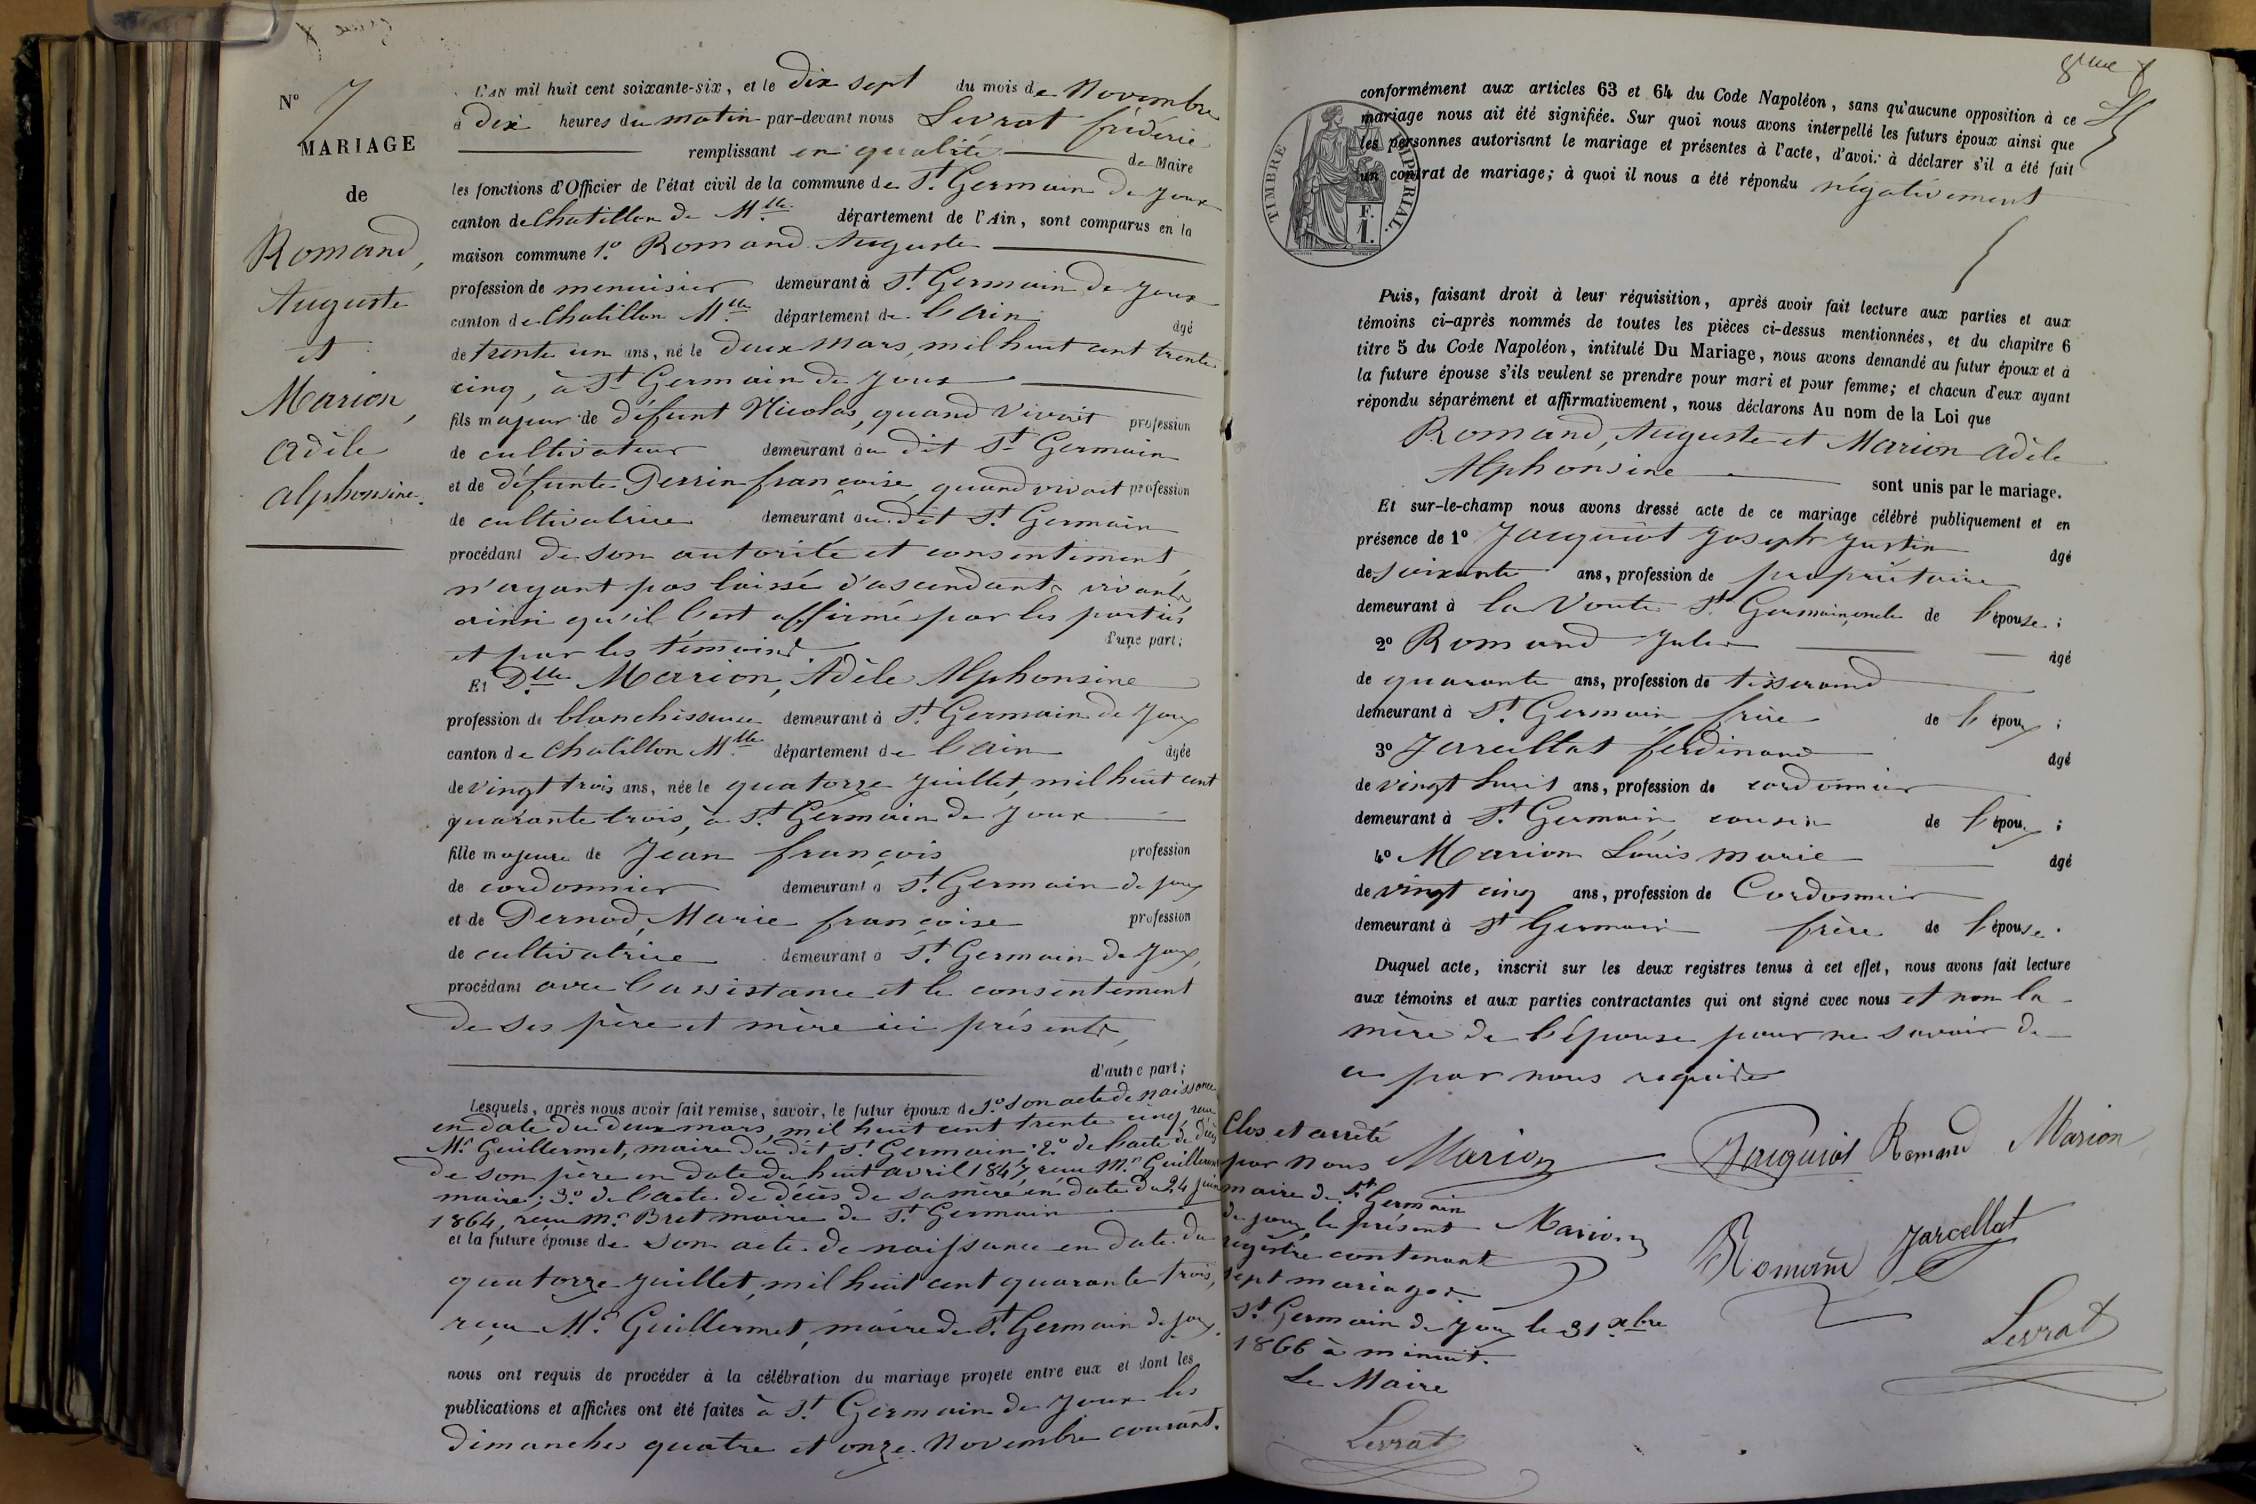 N° 7
MARIAGE
de
Romand,
Auguste
et
Marion,
Adèle
Alphonsine.
L'AN mil huit cent soixante-six, et le dix sept du mois de Novembre
à dix heures du matin par-devant nous Levrat frédéric
remplissant en qualité de Maire
les fonctions d'Officier de l'état civil de la commune de St. Germain de Joux
canton de Chatillon de Mlle. département de l'Ain, sont comparus en la
maison commune 1.° Romand Auguste
profession de menuisier demeurant à St. Germain de Joux
canton de Chatillon Mlle. département de l'Ain âgé
de trente un ans, né le deux Mars, mil huit cent trente
cinq, à St Germain de Joux
fils majeur de défunt Nicolas, quand vivait profession
de cultivateur demeurant au dit St Germain
et de défunte Perrin françoise, quand vivait profession
de cultivatrice demeurant au dit St. Germain
procédant de son autorité et consentement,
n'ayant pas laissé d'ascendants vivants,
ainsi qu'il l'est affirmé par les parties
et par les témoins d'une part;
Et Dlle. Marion, Adèle Alphonsine
profession de blanchisseuse demeurant à St. Germain de Joux
canton de Chatillon Mlle. département de l'Ain âgée
de vingt trois ans, née le quatorze juillet, mil huit cent
quarante trois, à St. Germain de Joux
fille majeure de Jean françois profession
de cordonnier demeurant à St. Germain de Joux
et de Pernod, Marie françoise profession
de cultivatrice demeurant à St. Germain de Joux,
procédant avec l'assistance et le consentement
de ses père et mère ici présents,
d'autre part;
Lesquels, après nous avoir fait remise, savoir, le futur époux de 1.° son acte de naissance
en date du deux mars, mil huit cent trente cinq, reçu
Mr. Guillermet, maire du dit St. Germain; 2.° de l'acte de décès
de son père en date du huit avril 1847, reçu Mr. Guillermet
maire; 3.° de l'acte de décès de sa mère en date du 24 juin
1864, reçu Mr. Bret maire de St. Germain
et la future épouse de son acte de naissance en date du
quatorze juillet, mil huit cent quarante trois,
reçu Mr. Guillermet, maire de St. Germain de Joux.
nous ont requis de procéder à la célébration du mariage projeté entre eux et dont les
publications et affiches ont été faites à St. Germain de Joux les
dimanches quatre et onze Novembre courant.
8me
TIMBRE IMPÉRIAL.
F.
1.
conformément aux articles 63 et 64 du Code Napoléon, sans qu'aucune opposition à ce
mariage nous ait été signifiée. Sur quoi nous avons interpellé les futurs époux ainsi que
les personnes autorisant le mariage et présentes à l'acte, d'avoir à déclarer s'il a été fait
un contrat de mariage; à quoi il nous a été répondu négativement
Puis, faisant droit à leur réquisition, après avoir fait lecture aux parties et aux
témoins ci-après nommés de toutes les pièces ci-dessus mentionnées, et du chapitre 6
titre 5 du Code Napoléon, intitulé Du Mariage, nous avons demandé au futur époux et à
la future épouse s'ils veulent se prendre pour mari et pour femme; et chacun d'eux ayant
répondu séparément et affirmativement, nous déclarons Au nom de la Loi que
Romand, Auguste et Marion Adèle
Alphonsine sont unis par le mariage.
Et sur-le-champ nous avons dressé acte de ce mariage célébré publiquement et en
présence de 1° Jacquiot Joseph Justin âgé
de soixante ans, profession de propriétaire
demeurant à la Voute St Germain, oncle de l'épouse;
2° Romand Jules âgé
de quarante ans, profession de tisserand
demeurant à St. Germain frère de l'époux;
3° Jarcellat ferdinand âgé
de vingt huit ans, profession de cordonnier
demeurant à St. Germain, cousin de l'époux;
4° Marion Louis Marie âgé
de vingt cinq ans, profession de Cordonnier
demeurant à St Germain frère de l'épouse.
Duquel acte, inscrit sur les deux registres tenus à cet effet, nous avons fait lecture
aux témoins et aux parties contractantes qui ont signé avec nous et non la
mère de l'épouse pour ne savoir de
ce par nous requise
Marion Jacquiot Romand Marion
Marion Romand Jarcellat
Levrat
Clos et arrêté
par nous
maire de St. Germain
de Joux, le présent
registre contenant
sept mariages.
St. Germain de Joux le 31 xbre
1866 à minuit.
Le Maire
Levrat